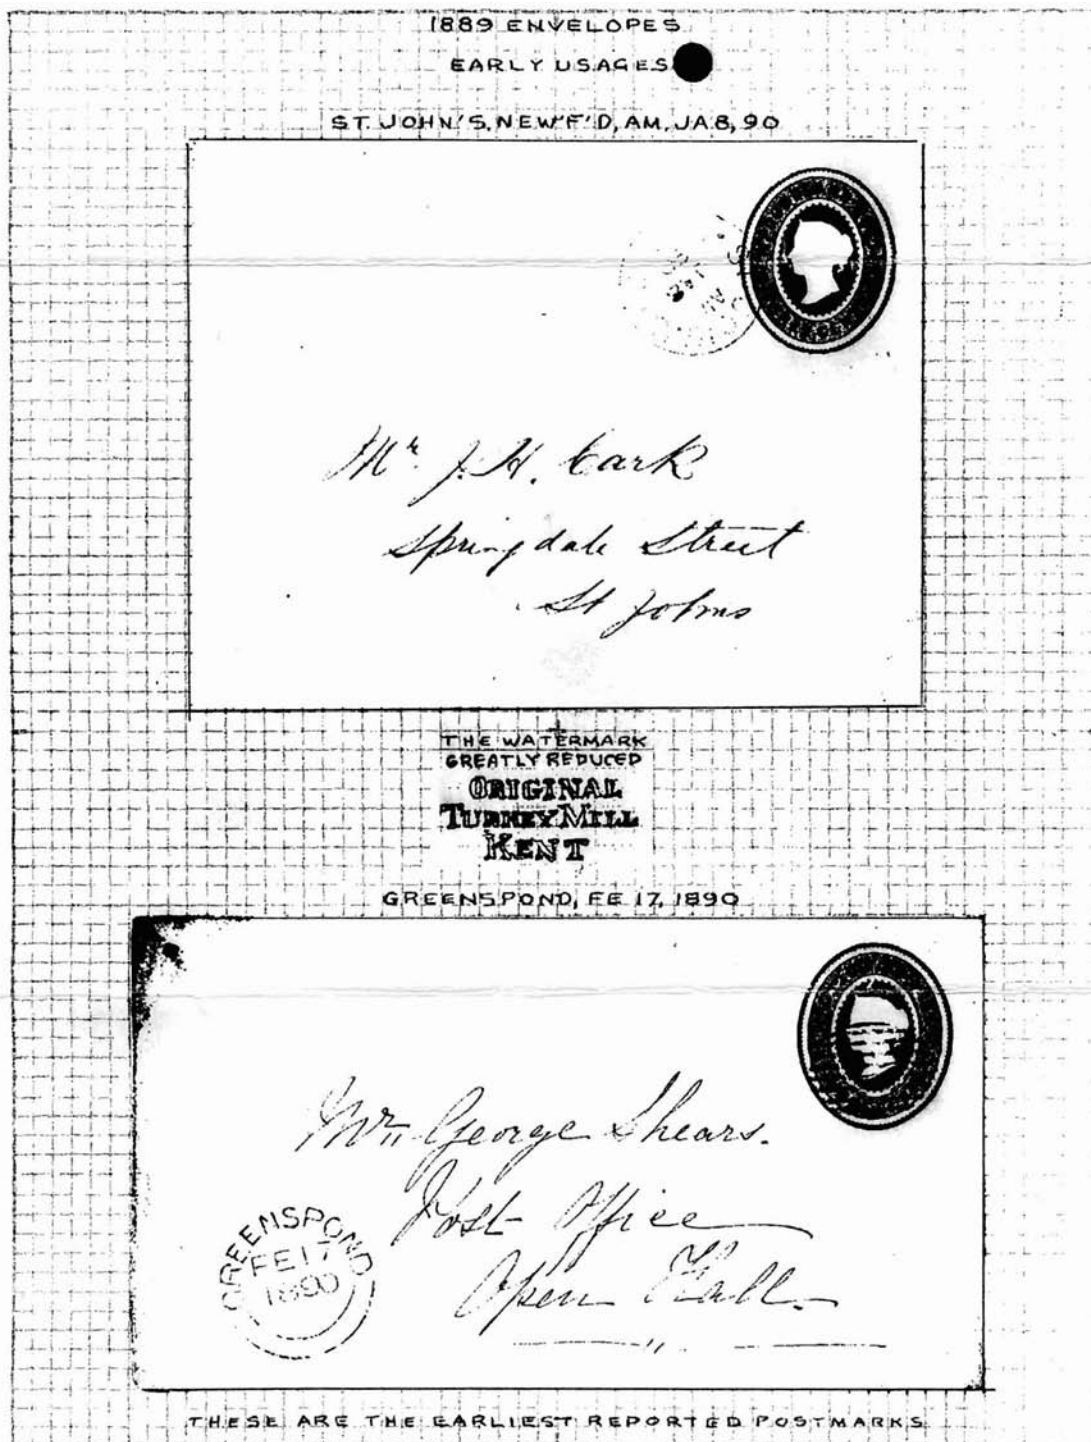 1889 ENVELOPES
EARLY USAGES
ST. JOHN'S, NEW'F'D, AM, JA 8, 90
Mr. J. H. Cark
Springdale Street
St Johns
THE WATERMARK
GREATLY REDUCED
ORIGINAL
TURKEY MILL
KENT
GREENSPOND, FE 17, 1890
Mr. George Shears.
Post Office
Open Hall
GREENSPOND
FE 17
1890
THESE ARE THE EARLIEST REPORTED POSTMARKS